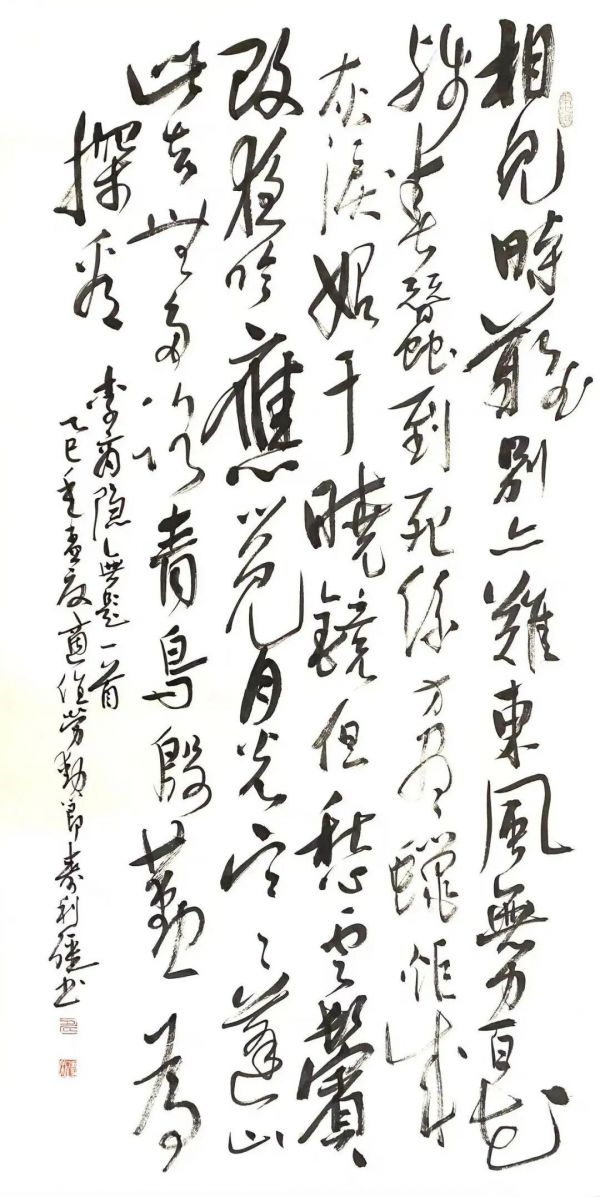 相見時難別亦難東風無力百花
殘春蠶到死絲方盡蠟炬成
灰淚始干曉鏡但愁云鬢
改夜吟應覺月光寒蓬山
此去無多路青鳥殷勤為
探看
李商隐無题一首
乙巳年孟夏適值劳動節利强书